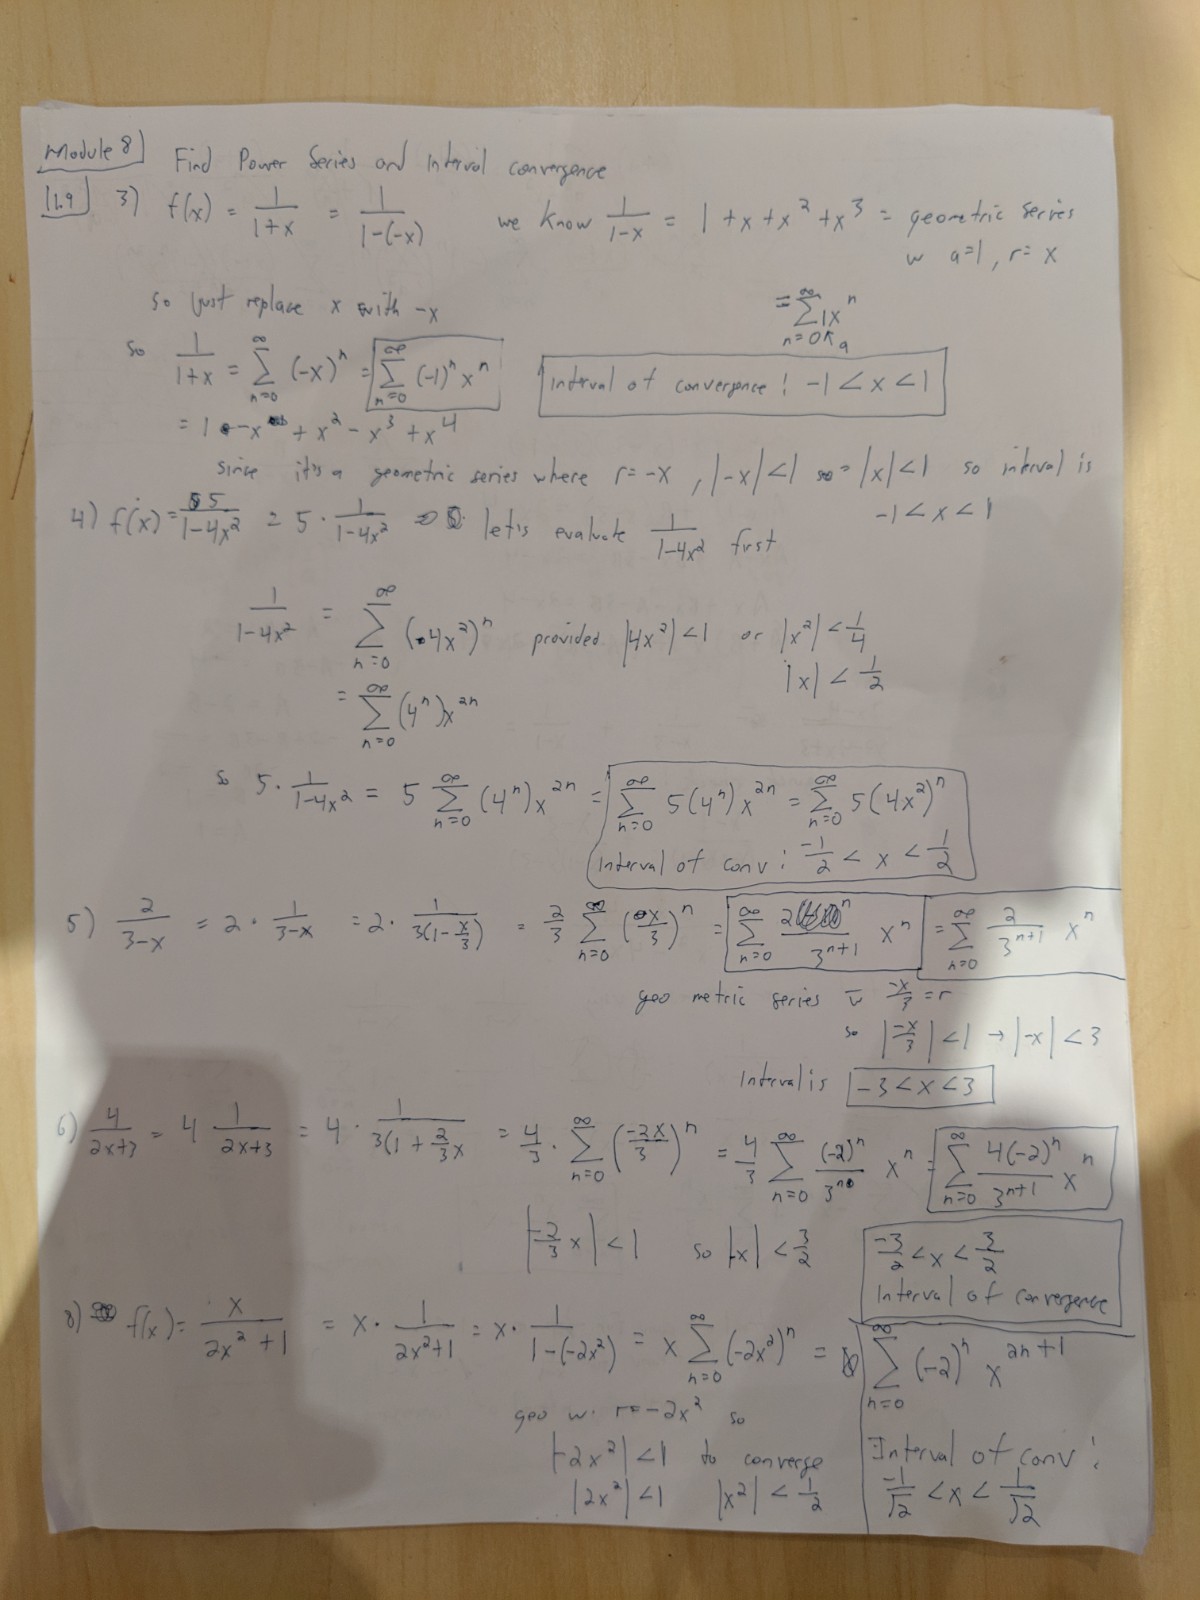 Module 8) Find Power Series and interval convergence
11.9 3) f(x) = 1/(1+x) = 1/(1-(-x)) we know 1/(1-x) = 1 + x + x² + x³ = geometric series
w a=1, r=x
so just replace x with -x = ∑_{n=0}^{∞} 1x^n
a
so 1/(1+x) = ∑_{n=0}^{∞} (-x)^n = ∑_{n=0}^{∞} (-1)^n x^n Interval of convergence: -1 < x < 1
= 1 - x + x² - x³ + x⁴
since it's a geometric series where r=-x, |-x|<1 = |x|<1 so interval is
-1 < x < 1
4) f(x) = 5/(1-4x²) = 5 · 1/(1-4x²) let's evaluate 1/(1-4x²) first
1/(1-4x²) = ∑_{n=0}^{∞} (4x²)^n provided |4x²|<1 or |x²| < 1/4
|x| < 1/2
= ∑_{n=0}^{∞} (4^n)x^{2n}
so 5 · 1/(1-4x²) = 5 ∑_{n=0}^{∞} (4^n)x^{2n} = ∑_{n=0}^{∞} 5(4^n)x^{2n} = ∑_{n=0}^{∞} 5(4x²)^n
Interval of conv: -1/2 < x < 1/2
5) 2/(3-x) = 2 · 1/(3-x) = 2 · 1/(3(1-x/3)) = 2/3 ∑_{n=0}^{∞} (x/3)^n = ∑_{n=0}^{∞} 2/3^{n+1} x^n = ∑_{n=0}^{∞} 2/3^{n+1} x^n
geometric series w -x/3 = r
so |-x/3| < 1 → |-x| < 3
Interval is -3 < x < 3
6) 4/(2x+3) = 4 1/(2x+3) = 4 · 1/(3(1 + 2/3 x = 4/3 · ∑_{n=0}^{∞} (-2x/3)^n = 4/3 ∑_{n=0}^{∞} (-2)^n/3^n x^n = ∑_{n=0}^{∞} 4(-2)^n/3^{n+1} x^n
|-2/3 x| < 1 so |-x| < 3/2 -3/2 < x < 3/2
Interval of convergence
8) f(x) = x/(2x²+1) = x · 1/(2x²+1) = x · 1/(1-(-2x²)) = x ∑_{n=0}^{∞} (-2x²)^n = ∑_{n=0}^{∞} (-2)^n x^{2n+1}
geo w. r=-2x² so
|-2x²| < 1 to converge Interval of conv:
|2x²| < 1 |x²| < 1/2 -1/√2 < x < 1/√2